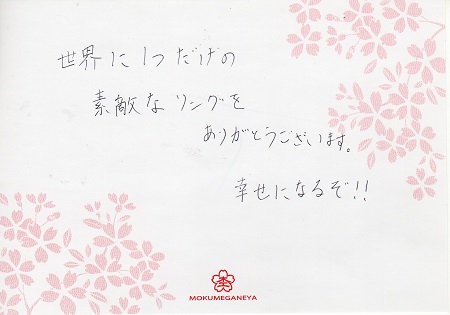 世界に1つだけの
素敵なリングを
ありがとうございます。
幸せになるぞ!!
MOKUMEGANEYA